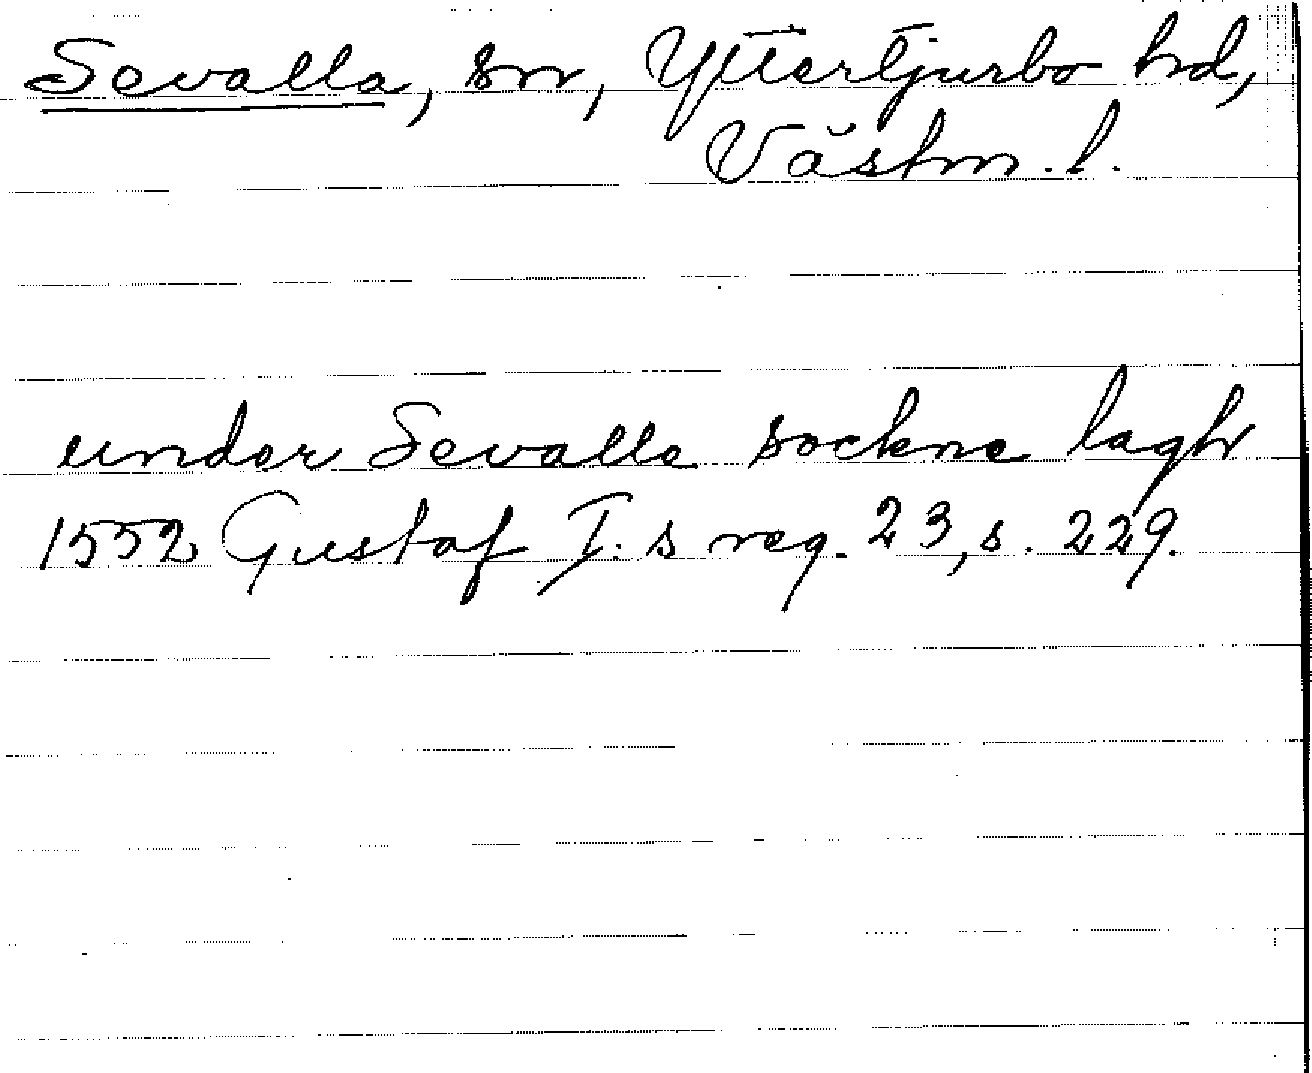 Sevalla, sn, Yttertjurbo hd,
Västm. l.
under Sevalle sockne lagh
1552 Gustaf I.s reg. 23, s. 229.